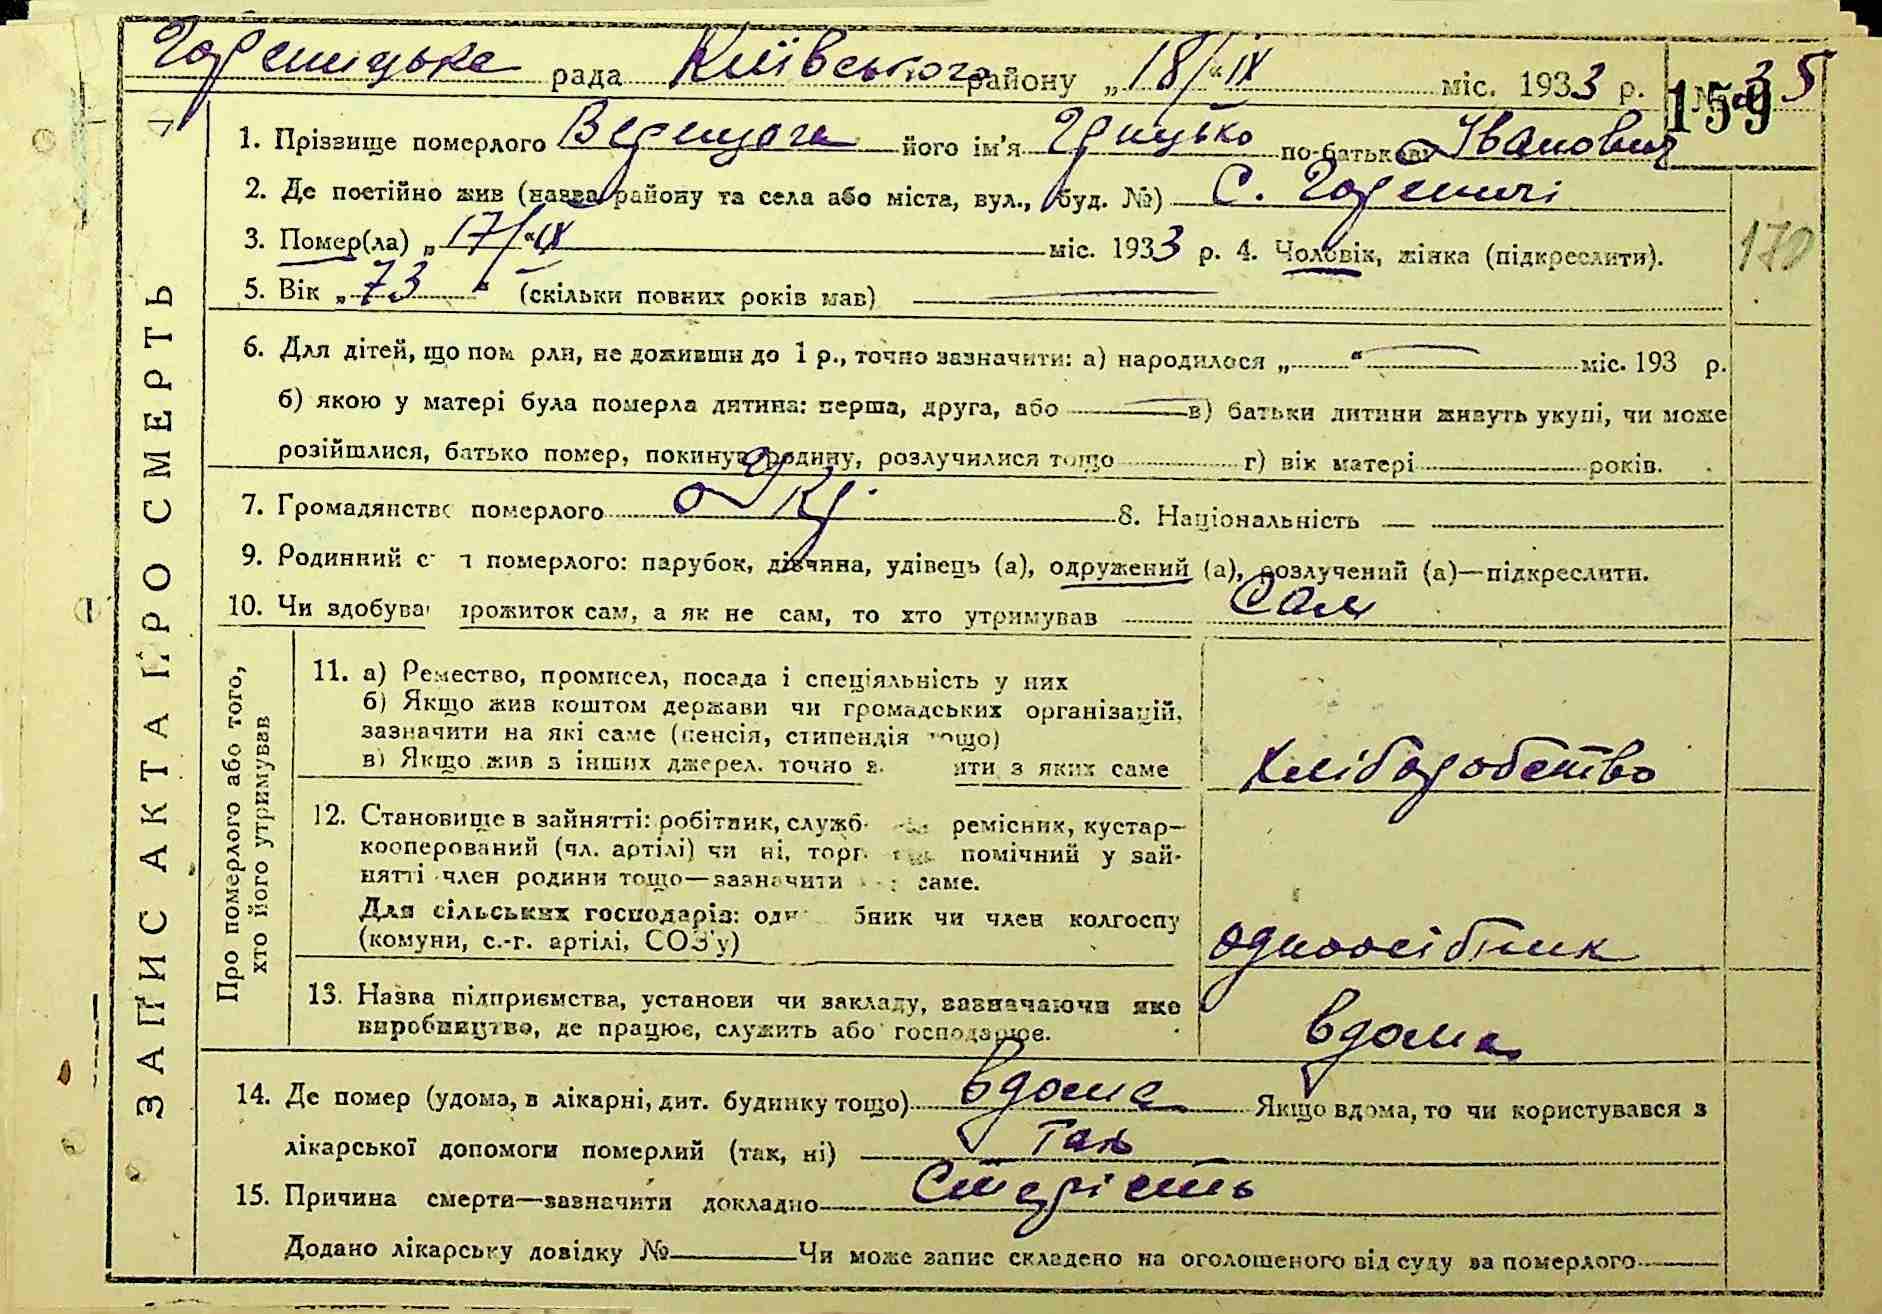 Гореницьке рада Київського району „18/“ІХ міс. 1933 р. № 35
159
1. Прізвище померлого Верещага його ім'я Грицько по-батькові Іванович
2. Де постійно жив (назва району та села або міста, вул., буд. №) С. Гореничі
3. Помер(ла) „17/“ІХ міс. 1933 р. 4. Чоловік, жінка (підкреслити).
170
5. Вік „73“ (скільки повних років мав)
6. Для дітей, що пом рли, не доживши до 1 р., точно зазначити: а) народилося „ “ міс. 193 р.
б) якою у матері була померла дитина: перша, друга, або в) батьки дитини живуть укупі, чи може
розійшлися, батько помер, покинув родину, розлучилися тощо г) вік матері років.
7. Громадянство померлого 8. Національність —
9. Родинний с н померлого: парубок, дівчина, удівець (а), одружений (а), розлучений (а)—підкреслити.
10. Чи здобував прожиток сам, а як не сам, то хто утримував Сам
ЗАПИС АКТА ПРО СМЕРТЬ
Про померлого або того,
хто його утримував
11. а) Ремество, промисел, посада і спеціяльність у них
б) Якщо жив коштом держави чи громадських організацій,
зазначити на які саме (пенсія, стипендія тощо)
в) Якщо жив з інших джерел, точно з ити з яких саме
хліборобство
12. Становище в зайнятті: робітник, служб ремісник, кустар—
кооперований (чл. артілі) чи ні, торг помічний у зай-
нятті член родини тощо—зазначити саме.
Для сільських господарів: одн бник чи член колгоспу
(комуни, с.-г. артілі, СОЗ'у)
одноосібник
13. Назва підприємства, установи чи закладу, зазначаючи яке
виробництво, де працює, служить або господарює.
вдома
14. Де помер (удома, в лікарні, дит. будинку тощо) вдома Якщо вдома, то чи користувався з
лікарської допомоги померлий (так, ні) так
15. Причина смерти—зазначити докладно Старість
Додано лікарську довідку № Чи може запис складено на оголошеного від суду за померлого